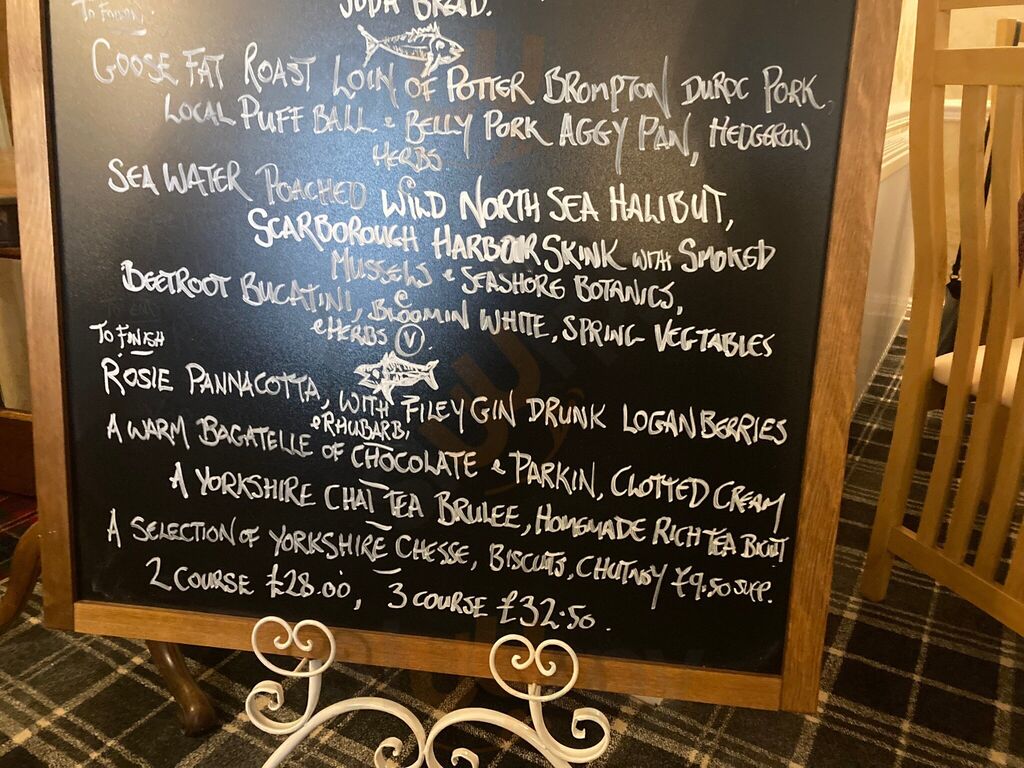 SODA BREAD.
To Follow;
GOOSE FAT ROAST LOIN OF POTTER BROMPTON DUROC PORK,
LOCAL PUFF BALL & BELLY PORK AGGY PAN, HEDGEROW
HERBS.
SEA WATER POACHED WILD NORTH SEA HALIBUT,
SCARBOROUGH HARBOUR SKINK WITH SMOKED
MUSSELS & SEASHORE BOTANICS,
BEETROOT BUCATINI, BLOOMIN WHITE, SPRING VEGTABLES
& HERBS V.
TO FINISH
ROSIE PANNACOTTA, WITH FILEY GIN DRUNK LOGANBERRIES
& RHUBARB,
A WARM BAGATELLE OF CHOCOLATE & PARKIN, CLOTTED CREAM
A YORKSHIRE CHAI TEA BRULEE, HOMEMADE RICH TEA
A SELECTION OF YORKSHIRE CHESSE, BISCUITS, CHUTNEY £9.50 SUPP.
2 COURSE £28.00, 3 COURSE £32.50.